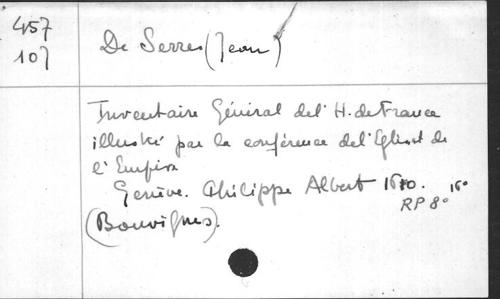 457
107
De Serres (Jean)
Inventaire Général de l'H. de France
illustré par la conférence de l'Eglise et de
l'Empire
Genève. Philippe Albert 1610. 16°
RP 8°
(Bouvignes).